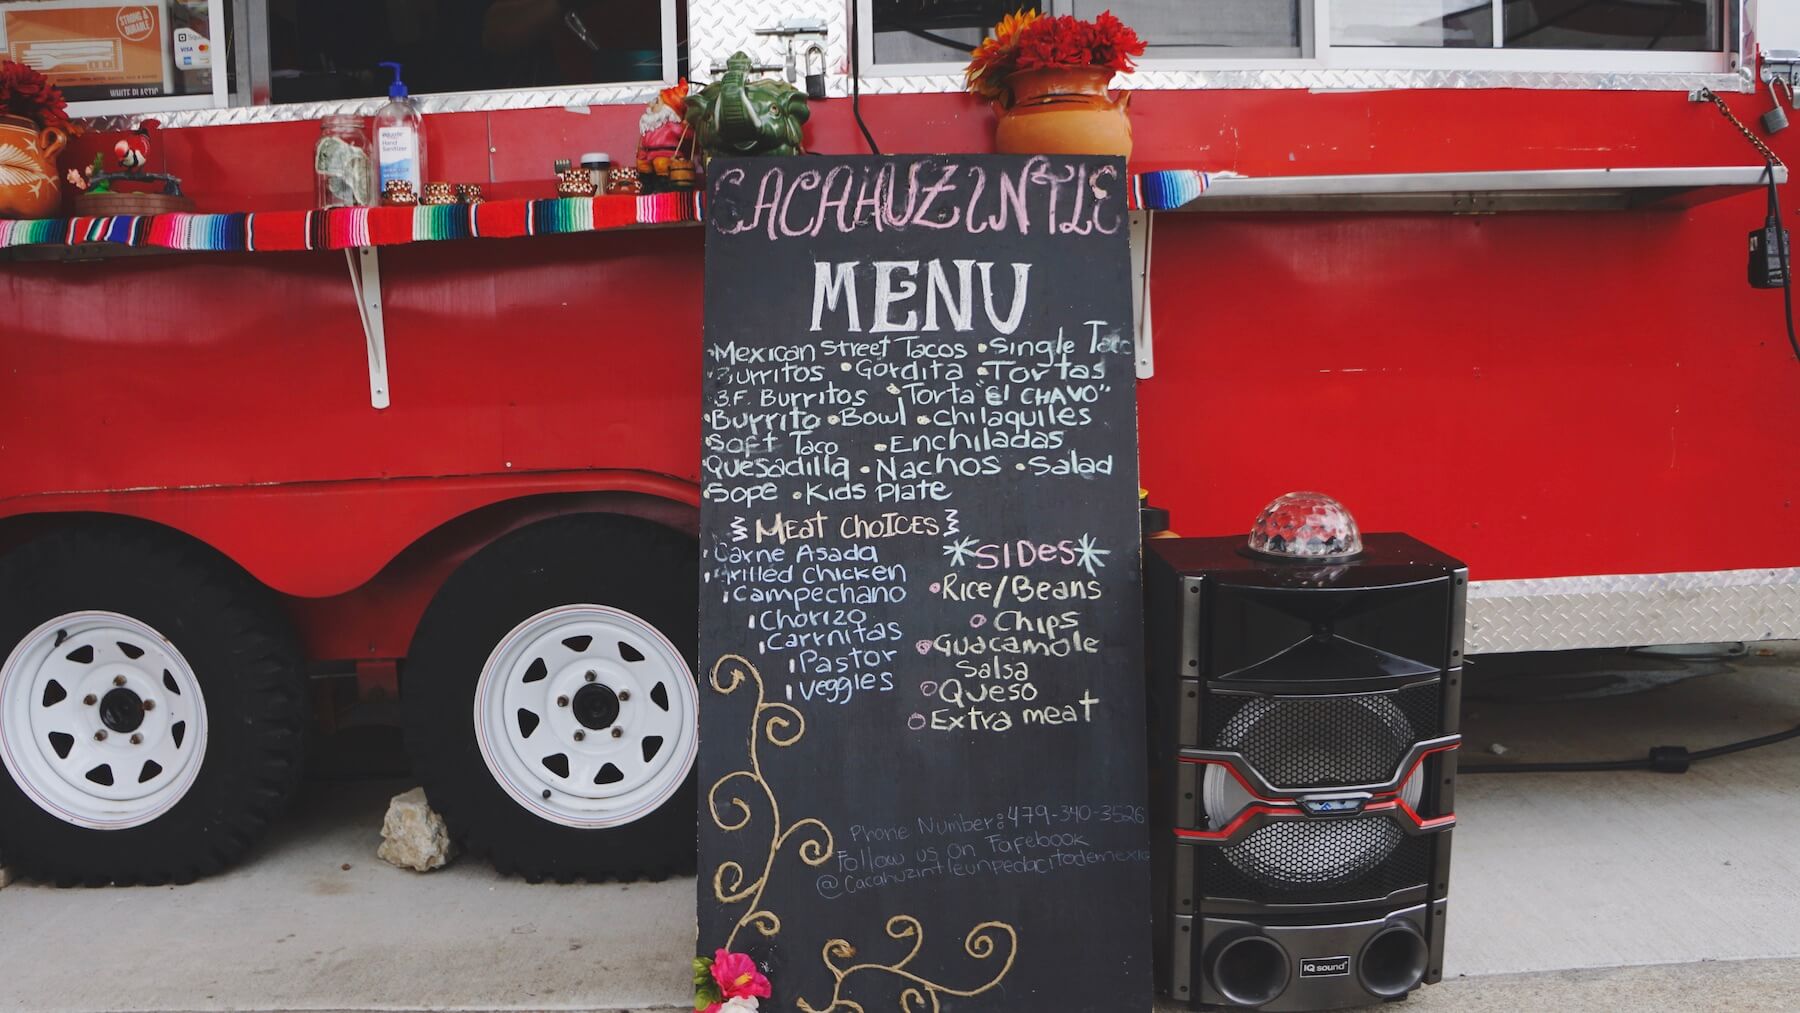 STRONG &
DURABLE
WHITE PLASTIC
Square
VISA
Hand
Sanitizer
CACAHUZINTLE
MENU
•Mexican Street Tacos •Single Taco
•Burritos •Gordita •Tortas
B.F. Burritos •Torta "El CHAVO"
•Burrito •Bowl •Chilaquiles
•Soft Taco •Enchiladas
•Quesadilla •Nachos •Salad
•Sope •Kids Plate
Meat Choices
Carne Asada
Grilled Chicken
Campechano
Chorizo
Carrnitas
Pastor
Veggies
*SIDES*
Rice/Beans
Chips
Guacamole
Salsa
Queso
Extra meat
Phone Number: 479-340-3526
Follow us on Fafebook
@Cacahuzintleunpedacitodemexico
IQ sound